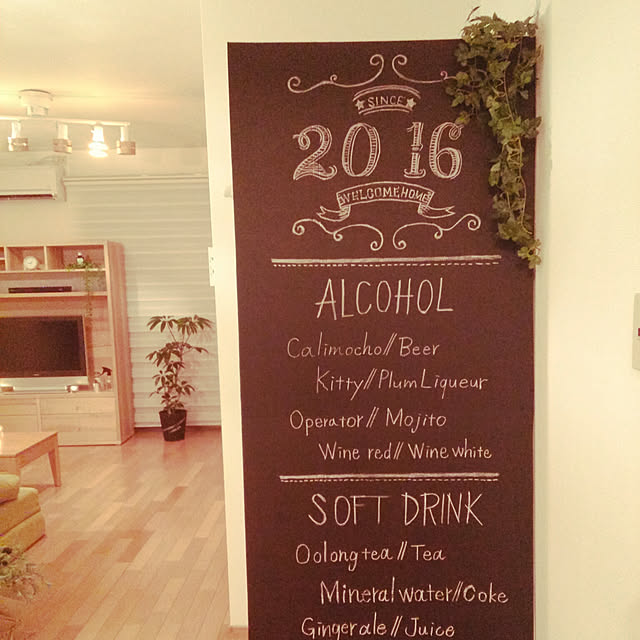 SINCE
2016
WHLCOMEHOME
ALCOHOL
Calimocho//Beer
Kitty//Plum Liqueur
Operator//Mojito
Wine red//Wine white
SOFT DRINK
Oolong tea//Tea
Mineral water//Coke
Gingerale//Juice